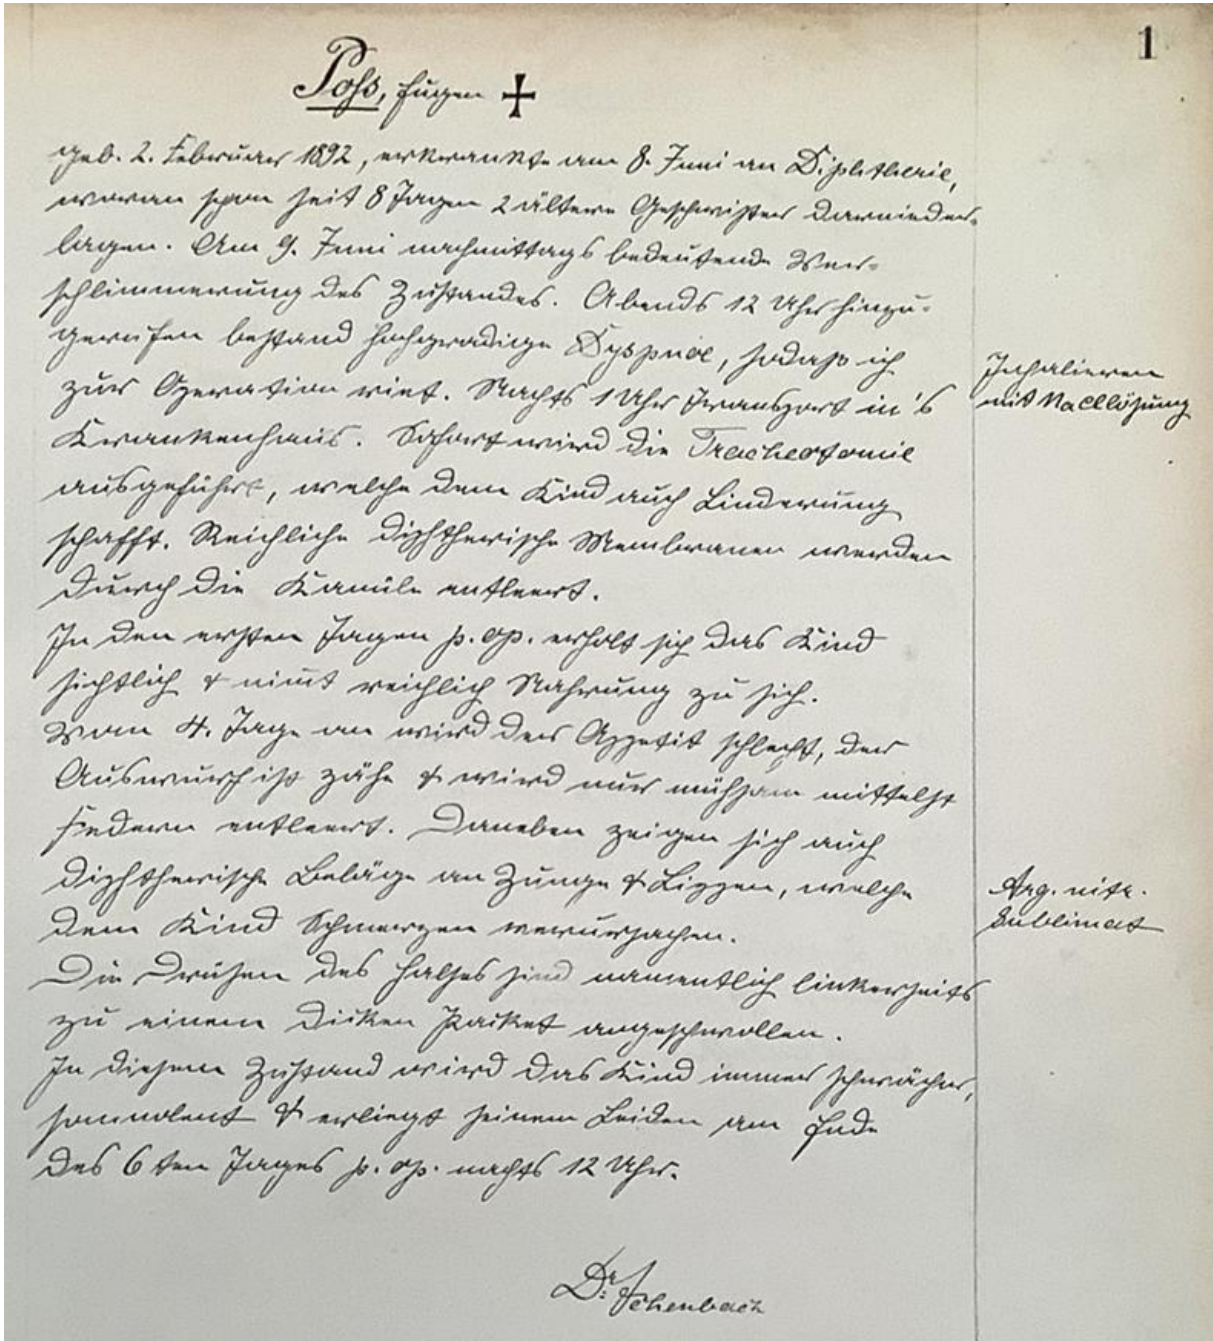 1
Poss, Eugen ✝
geb. 2. Februar 1892, erkrankte am 8. Juni an Diphtherie,
woran schon seit 8 Tagen 2 ältere Geschwister darnieder-
lagen. Am 9. Juni nachmittags bedeutende Ver-
schlimmerung des Zustandes. Abends 12 Uhr hinzu-
gerufen bestand hochgradige Dyspnoe, sodass ich
zur Operation riet. Nachts 1 Uhr Transport in's
Krankenhaus. Sofort wird die Tracheotomie
ausgeführt, welche dem Kind auch Linderung
schafft. Reichliche diphtherische Membranen werden
durch die Kanüle entleert.
In den ersten Tagen p. op. erholt sich das Kind
sichtlich & nimt reichlich Nahrung zu sich.
Vom 4. Tage an wird der Appetit schlecht, der
Auswurf ist zähe & wird nur mühsam mittelst
Federn entleert. Daneben zeigen sich auch
diphtherische Beläge an Zunge & Lippen, welche
dem Kind Schmerzen verursachen.
Die Drüsen des Halses sind namentlich linkerseits
zu einem dicken Packet angeschwollen.
In diesem Zustand wird das Kind immer schwächer,
somnolent & erliegt seinem Leiden am Ende
des 6ten Tages p. op. nachts 12 Uhr.
Inhalieren
mit NaCllösung
Arg. nitr.
Sublimat
Dr. Achenbach